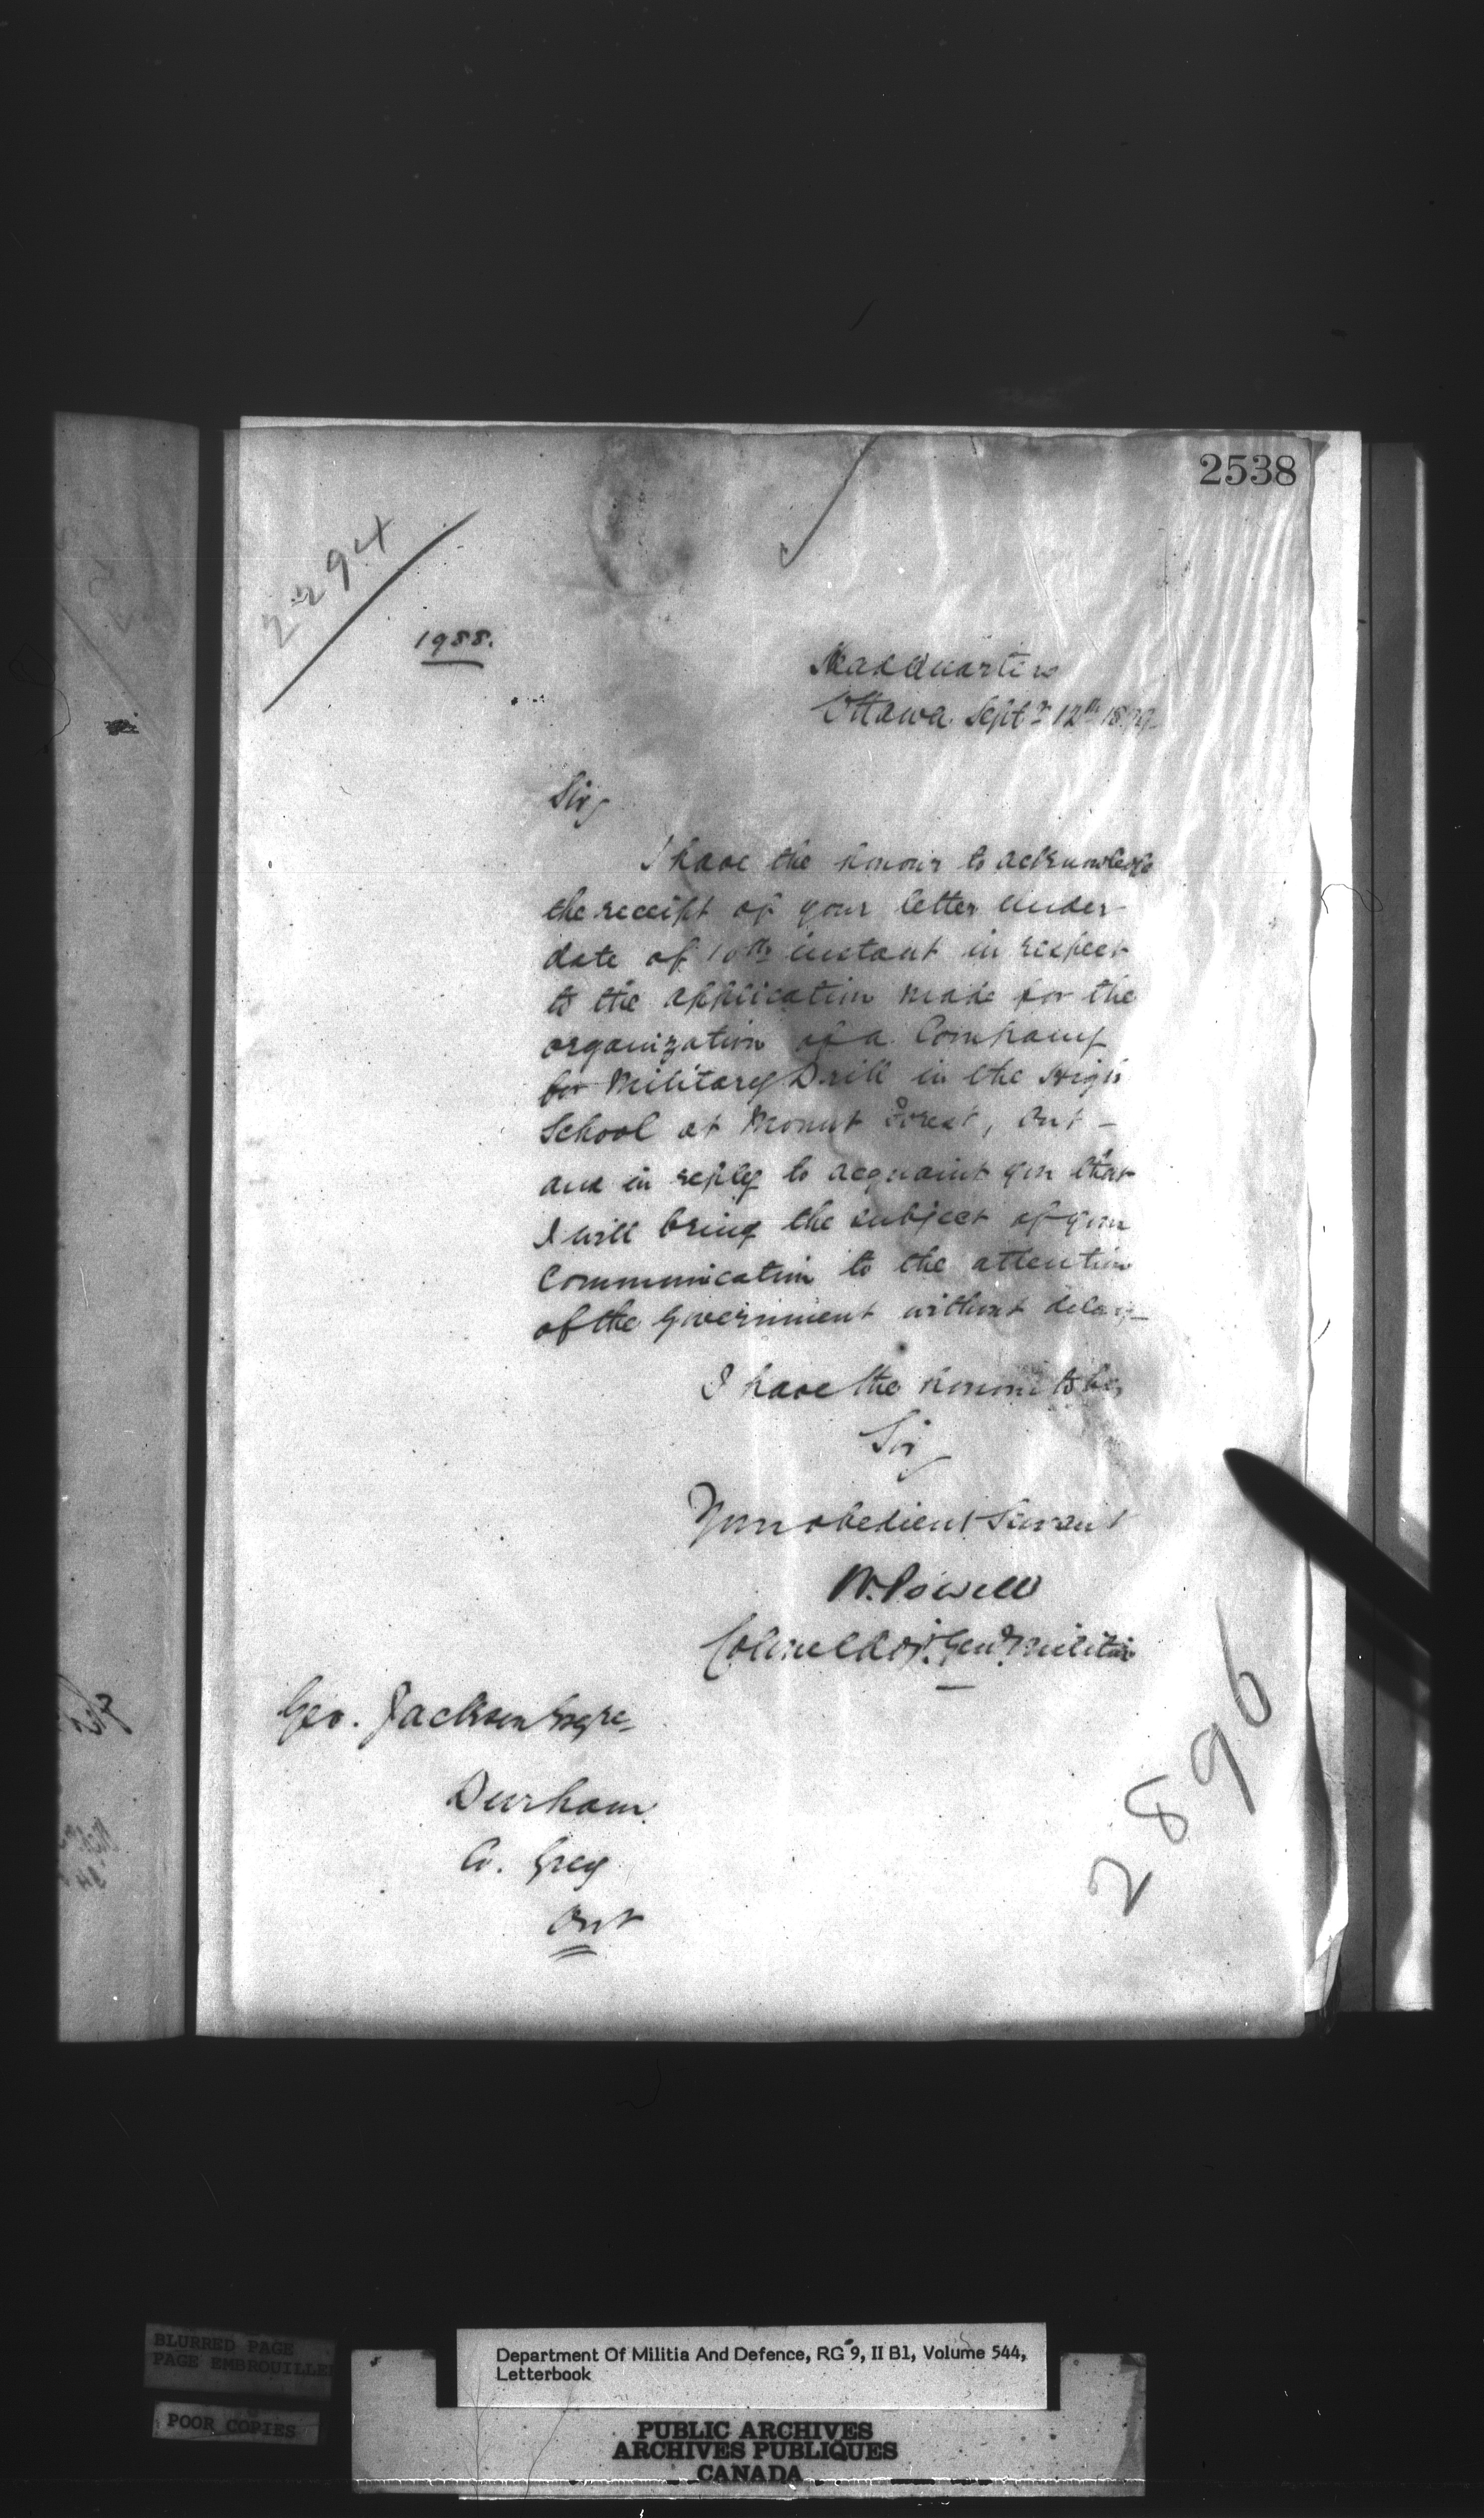 2538
2294
1988.
HeadQuarters
Ottawa Septr 12th 1879
Sir,
I have the honour to acknowledge
the receipt of your letter under
date of 10th instant in respect
to the application made for the
organization of a Company
for Military Drill in the High
School at Mount Forest, Ont –
and in reply to acquaint you that
I will bring the subject of your
Communication to the attention
of the Government without delay –
I have the honour to be,
Sir,
Your obedient Servant
W. Powell
Colonel Adjt. Genl. Militia
Geo. Jackson Esqre
Durham
Co. Grey
Ont
2896
BLURRED PAGE
PAGE EMBROUILLE
POOR COPIES
Department Of Militia And Defence, RG 9, II B1, Volume 544,
Letterbook
PUBLIC ARCHIVES
ARCHIVES PUBLIQUES
CANADA